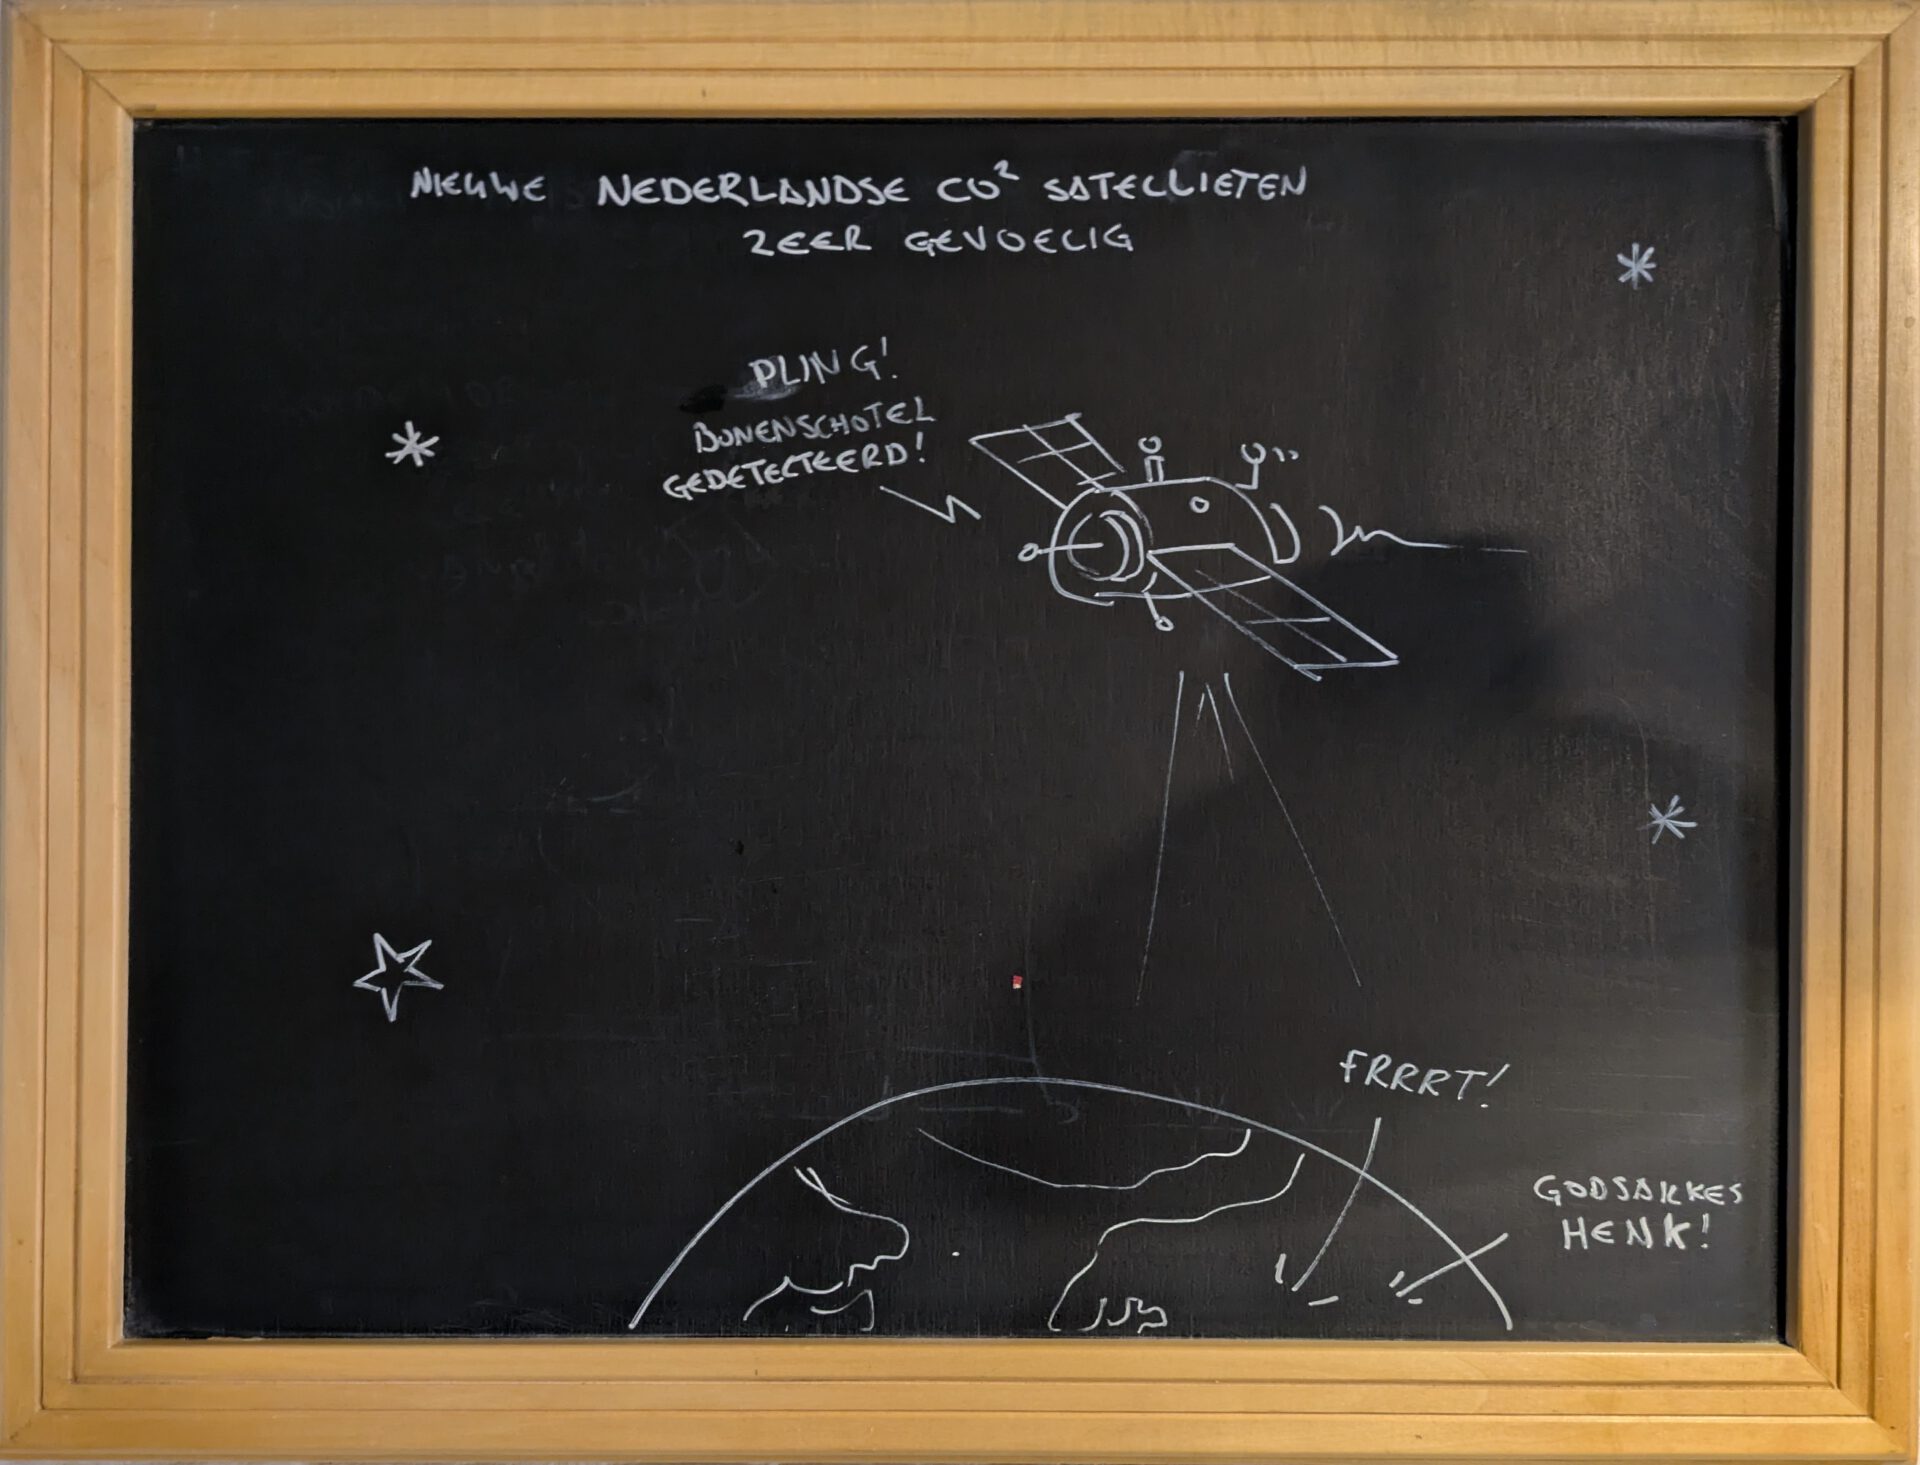 NIEUWE NEDERLANDSE CO² SATELLIETEN
ZEER GEVOELIG
PLING!
BONENSCHOTEL
GEDETECTEERD!
FRRRT!
GODSAKKES
HENK!